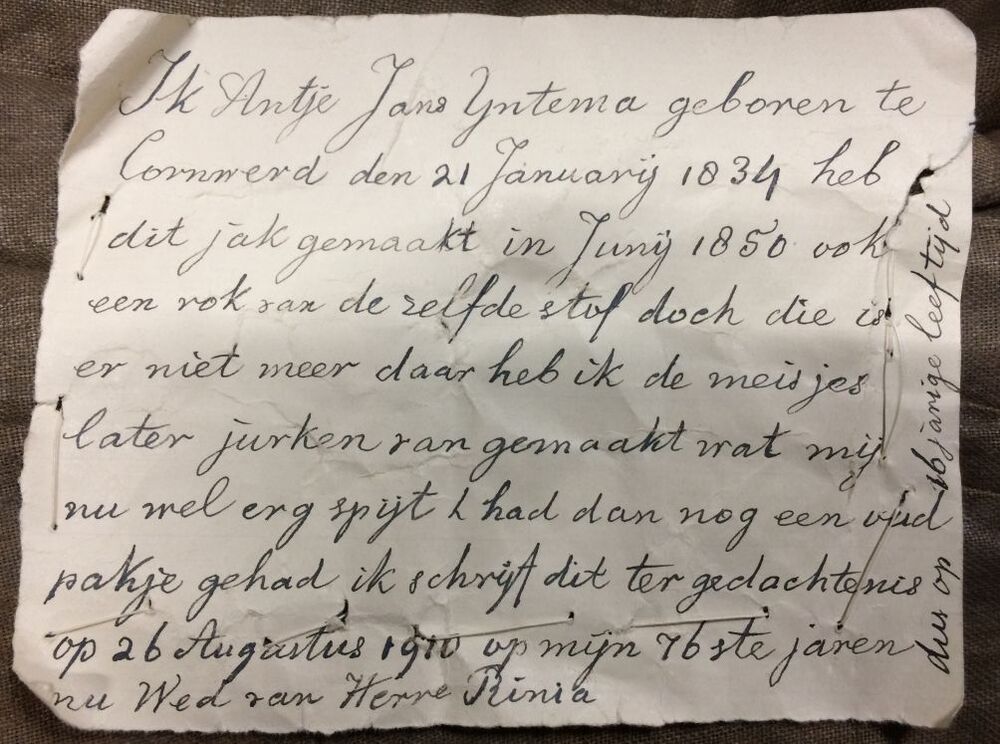 Ik Antje Jans Yntema geboren te
Cornwerd den 21 Januarij 1834 heb
dit jak gemaakt in Junij 1850 ook
een rok van de zelfde stof doch die is
er niet meer daar heb ik de meisjes
later jurken van gemaakt wat mij
nu wel erg spijt had dan nog een oud
pakje gehad ik schrijf dit ter gedachtenis
op 26 Augustus 1910 op mijn 76ste jaren
nu Wed van Herre Rinia
dus op 16 jarige leeftijd